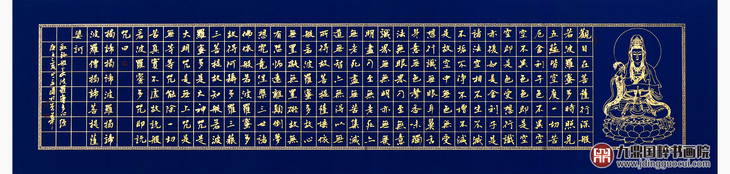 觀自在菩薩行深般
若波羅蜜多時照見
五蘊皆空度一切苦
厄舍利子色不異空
空不異色色即是空
空即是色受想行識
亦復如是舍利子是
諸法空相不生不滅
不垢不淨不增不減
是故空中無色無受
想行識無眼耳鼻舌
身意無色聲香味觸
法無眼界乃至無意
識界無無明亦無無
明盡乃至無老死亦
無老死盡無苦集滅
道無智亦無得以無
所得故菩提薩埵依
般若波羅蜜多故心
無罣礙無罣礙故無
有恐怖遠離顛倒夢
想究竟涅槃三世諸
佛依般若波羅蜜多
故得阿耨多羅三藐
三菩提故知般若波
羅蜜多是大神咒是
大明咒是無上咒是
無等等咒能除一切
苦真實不虛故說般
若波羅蜜多咒即說
咒曰
揭諦揭諦波羅揭諦
波羅僧揭諦菩提薩
婆訶
九鼎国粹书画院
www.jdingguocui.com